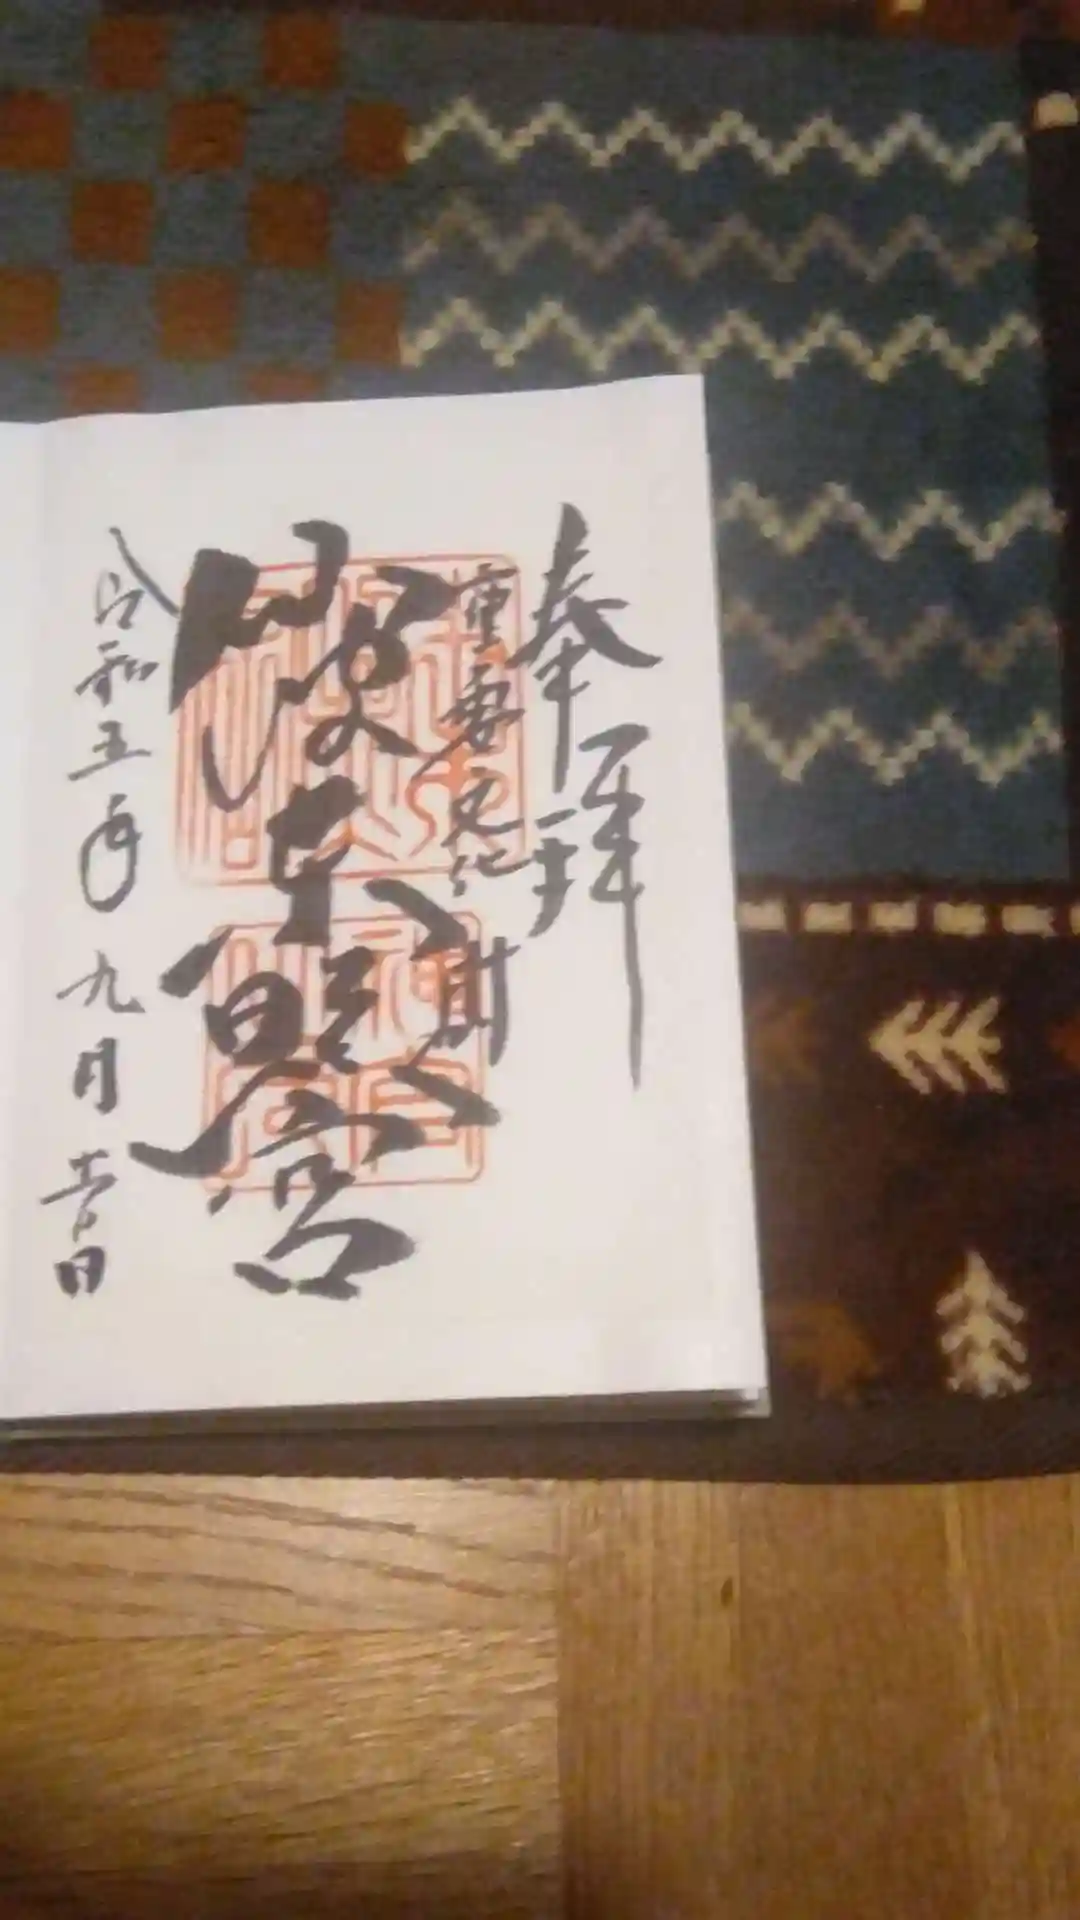 奉拝
重要文化財
仙波東照宮
令和五年九月日